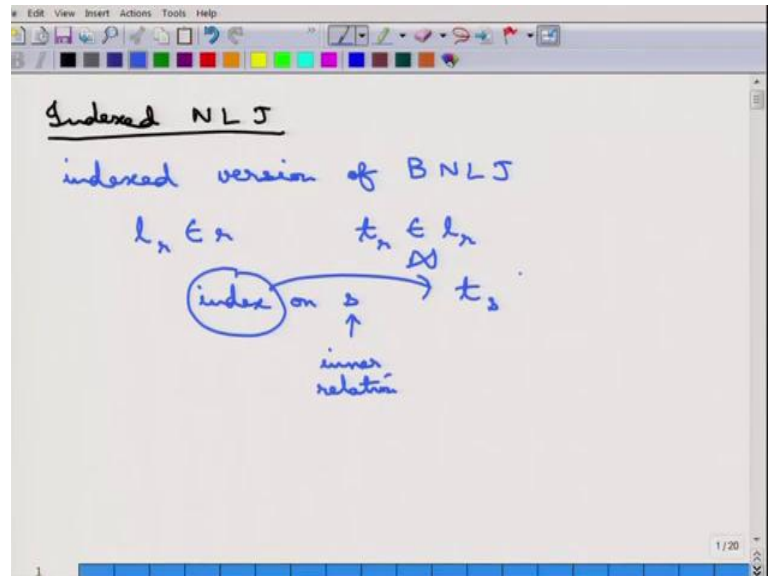 Edit View Insert Actions Tools Help
Indexed NLJ
indexed version of BNLJ
l_r ∈ r t_r ∈ l_r
⋈
index on s → t_s
↑
inner
relation
1/20
1